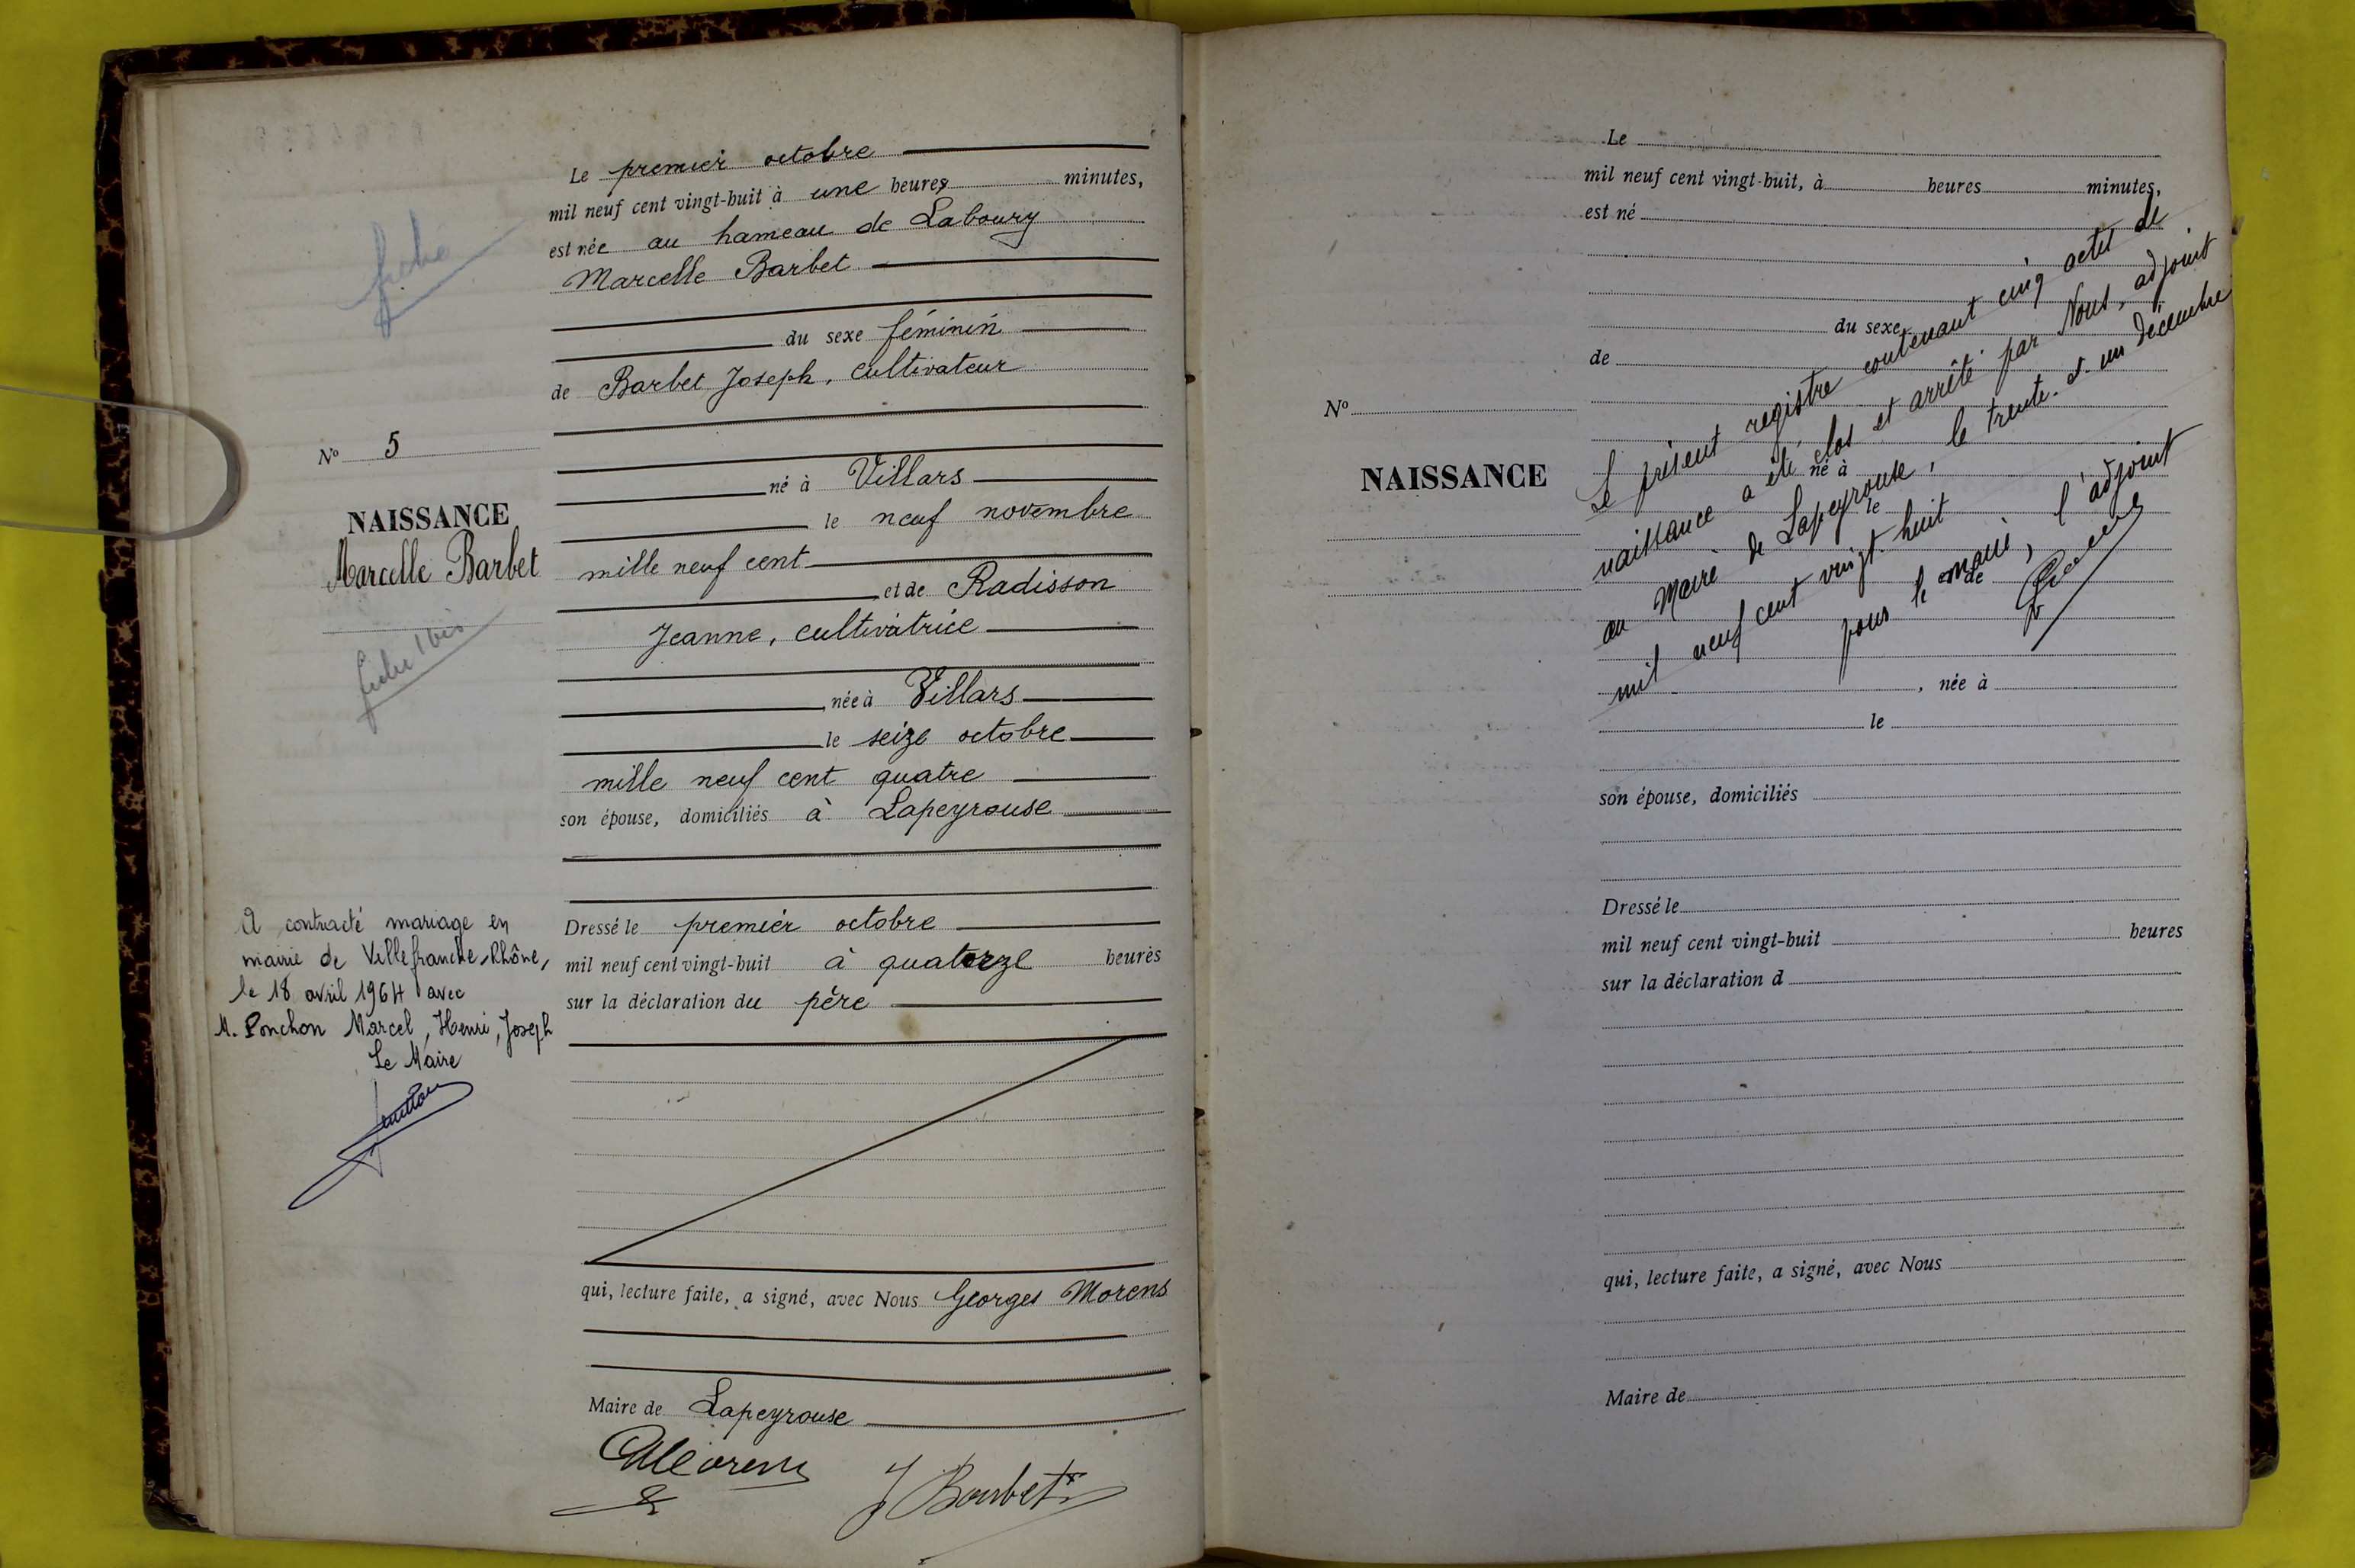 Le premier octobre
mil neuf cent vingt-huit à une heures minutes,
est née au hameau de Laboury
Marcelle Barbet
du sexe féminin
de Barbet Joseph, cultivateur
né à Villars
le neuf novembre
mille neuf cent
et de Radisson
Jeanne, cultivatrice
née à Villars
le seize octobre
mille neuf cent quatre
son épouse, domiciliés à Lapeyrouse
Dressé le premier octobre
mil neuf cent vingt-huit à quatorze heures
sur la déclaration du père
qui, lecture faite, a signé, avec Nous Georges Morens
Maire de Lapeyrouse
GMorens
J Barbet
fiche
N° 5
NAISSANCE
Marcelle Barbet
fiche 1 bis
A contracté mariage en
mairie de Villefranche-Rhône,
le 18 avril 1964 avec
M. Ponchon Marcel, Henri, Joseph
Le Maire
Le
mil neuf cent vingt-huit, à heures minutes,
est né
du sexe
de
N°
NAISSANCE
né à
le
et de
, née à
le
son épouse, domiciliés
Dressé le
mil neuf cent vingt-huit heures
sur la déclaration d
qui, lecture faite, a signé, avec Nous
Maire de
Le présent registre contenant cinq actes de
naissance a été clos et arrêté par Nous, adjoint
au Maire de Lapeyrouse, le trente-et-un décembre
mil neuf cent vingt-huit
pour le maire, l'adjoint